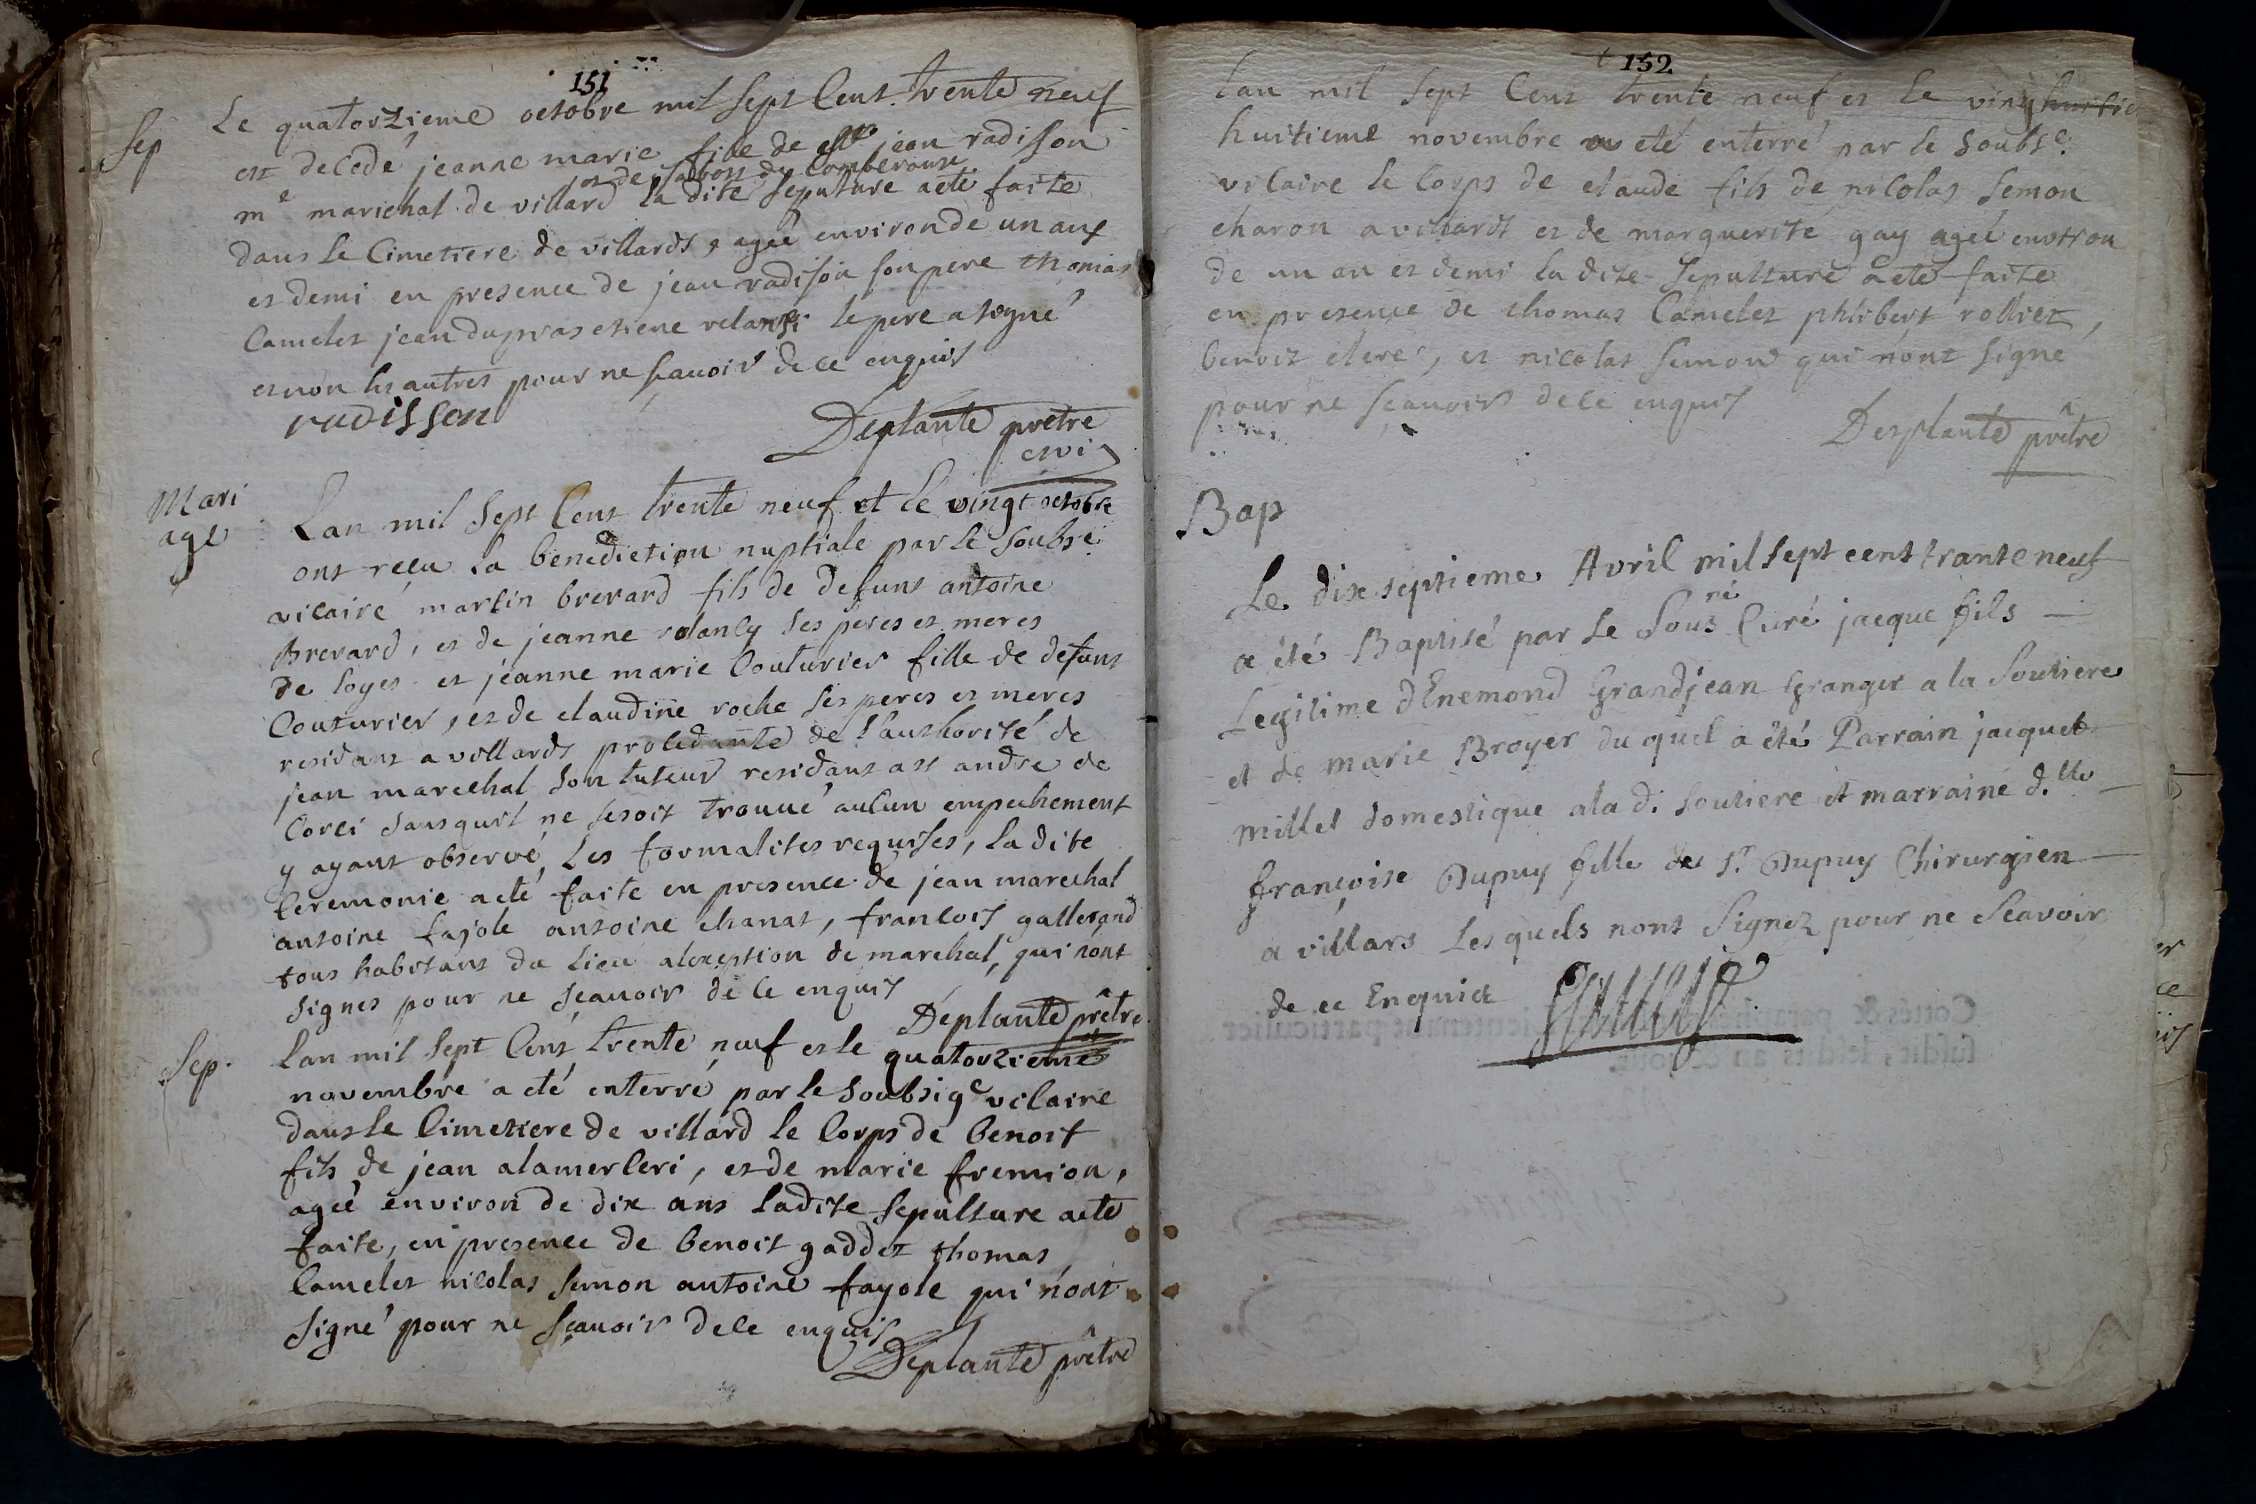 151
Sep
Le quatorzieme octobre mil sept Cent trente neuf
est decedé jeanne marie fille de jean radisson
et de
me marichal de villard la dite sepulture aeté faite
dans le Cimetiere de villards, ageé environ de un ans
et demi en presence de jean radison son pere thomas
Camelet jean dupras etiene le pere a signé
et non les autres pour ne sçauoir de ce enquis
radisson
Deplante prêtre
Mari
age
Lan mil sept Cent trente neuf et le vingt octobre
ont reçu la benediction nuptiale par le soubsé
vicaire martin brevard fils de defunt antoine
Brevard, et de jeanne ses peres et meres
de loyes et jeanne marie Couturier fille de defunt
Couturier, et de claudine roche ses peres et meres
residant a villards procedante de l'authorité de
jean marechal son tuteur residant a st andre de
Corci sans quil ne se soit trouué aucun empechement
y ayant observé les formalites requises, la dite
Ceremonie aeté faite en presence de jean marechal
antoine fajole antoine chanat, francois gallerand
tous habitans du lieu alexeption de marechal, qui nont
signes pour ne sçauoir de ce enquis
Deplante prêtre
Sep.
Lan mil sept Cent trente neuf et le quatorzieme
novembre a eté enterré par le soubsigé vicaire
dans le Cimetiere de villard le Corps de benoit
fils de jean alamerceri, et de marie fremion,
ageé environ de dix ans ladite sepulture aeté
faite, en presence de benoit gaddet thomas
Camelet nicolas semon antoine fayole qui n'ont
signé pour ne sçauoir de ce enquis
Deplante prêtre
152
Lan mil sept Cent trente neuf et le ving
huitieme novembre eté enterré par le soubsé
vicaire le Corps de claude fils de nicolas semon
charon a villards et de marguerite gay ageé environ
de un an et demi la dite sepulture aeté faite
en presence de thomas Camelet philibert rolliet,
benoit clere, et nicolas semon qui n'ont signé
pour ne sçauoir de ce enquis
Desplante prêtre
Bap
Le dix septieme Avril mil sept cent trante neuf
né
a été Baptisé par le Sous Curé jacque fils
Legitime d'Enemond Grandjean Granger a la Soutiere
et de marie Broyer du quel a été Parrain jacque
millet domestique a la d. soutiere et marraine d.lle
françoise Dupuy fille de Sr. Dupuy Chirurgien
a villars Les quels nont Signez pour ne Scavoir
de ce Enquis